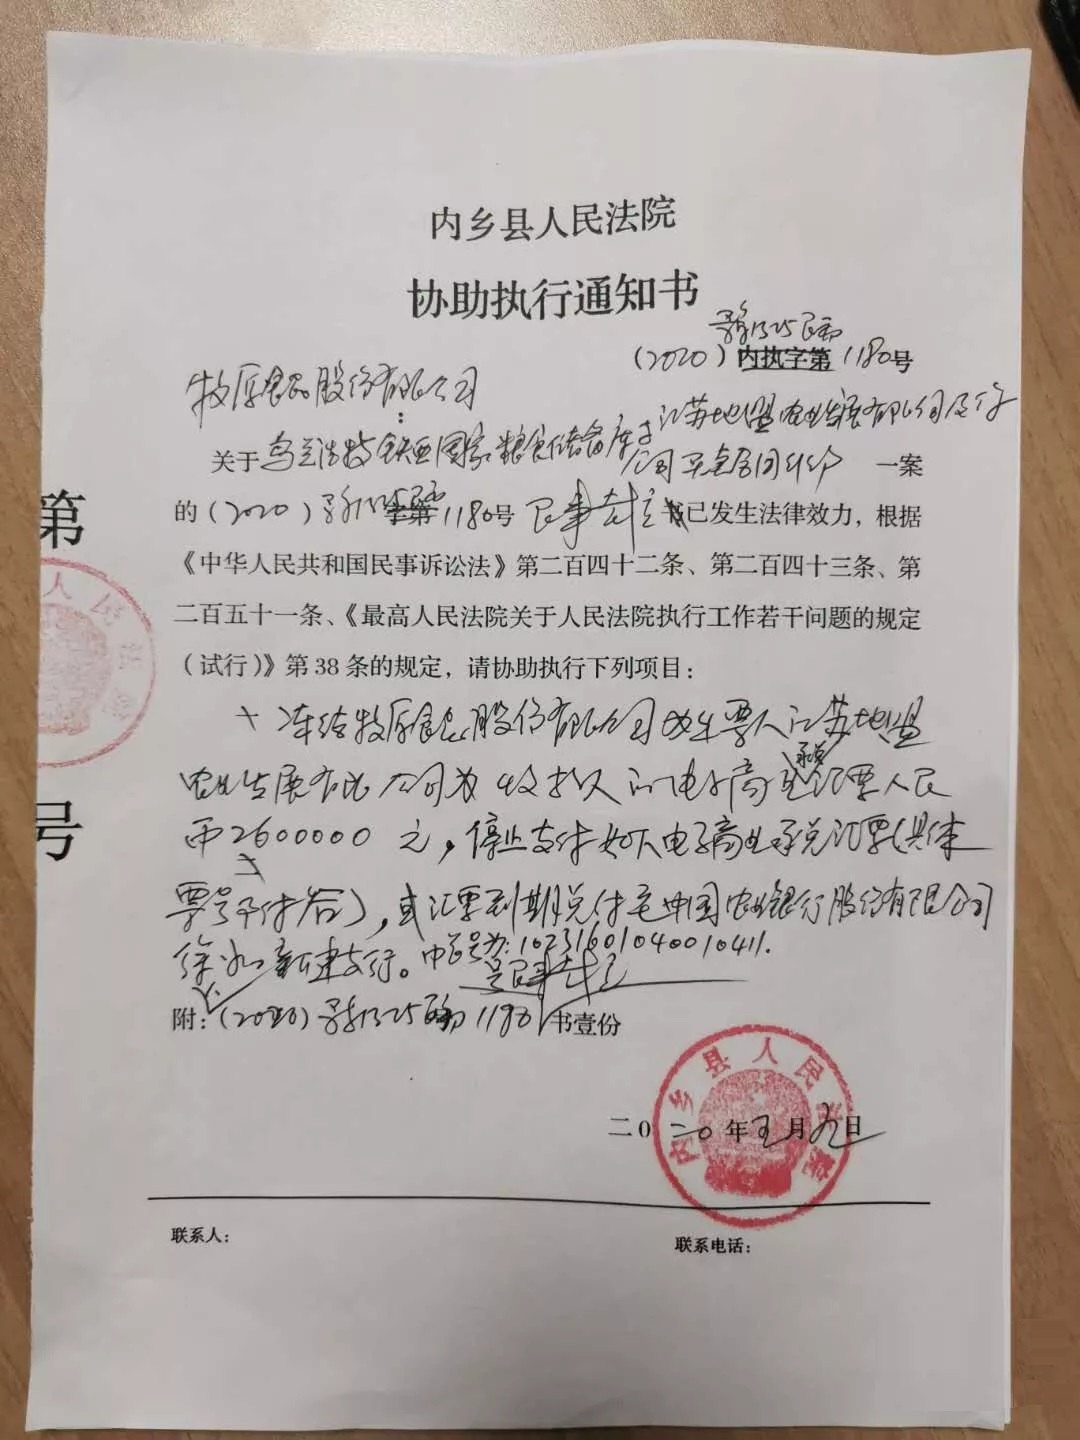 内乡县人民法院
协助执行通知书
豫1325民初
(2020)内执字第1180号
牧原食品股份有限公司
:
关于乌兰浩特铁西国家粮食储备库与江苏地盟农业发展有限公司及
公司买卖合同纠纷 一案
的(2020)豫1325民初字第1180号民事裁定书已发生法律效力，根据
《中华人民共和国民事诉讼法》第二百四十二条、第二百四十三条、第
二百五十一条、《最高人民法院关于人民法院执行工作若干问题的规定
(试行)》第38条的规定，请协助执行下列项目：
冻结牧原食品股份有限公司为出票人江苏地盟
农业发展有限公司为收款人的电子商业承兑汇票人民
币2600000元，停止支付如下电子商业承兑汇票(具体
票号见付后)，或汇票到期兑付至中国农业银行股份有限公司
徐州新建支行。 号为:10231601040010411.
附：(2020)豫1325民初1180号民事裁定书壹份
二0二0年五月九日
内乡县人民法院
联系人：
联系电话：
第
人民法院
号